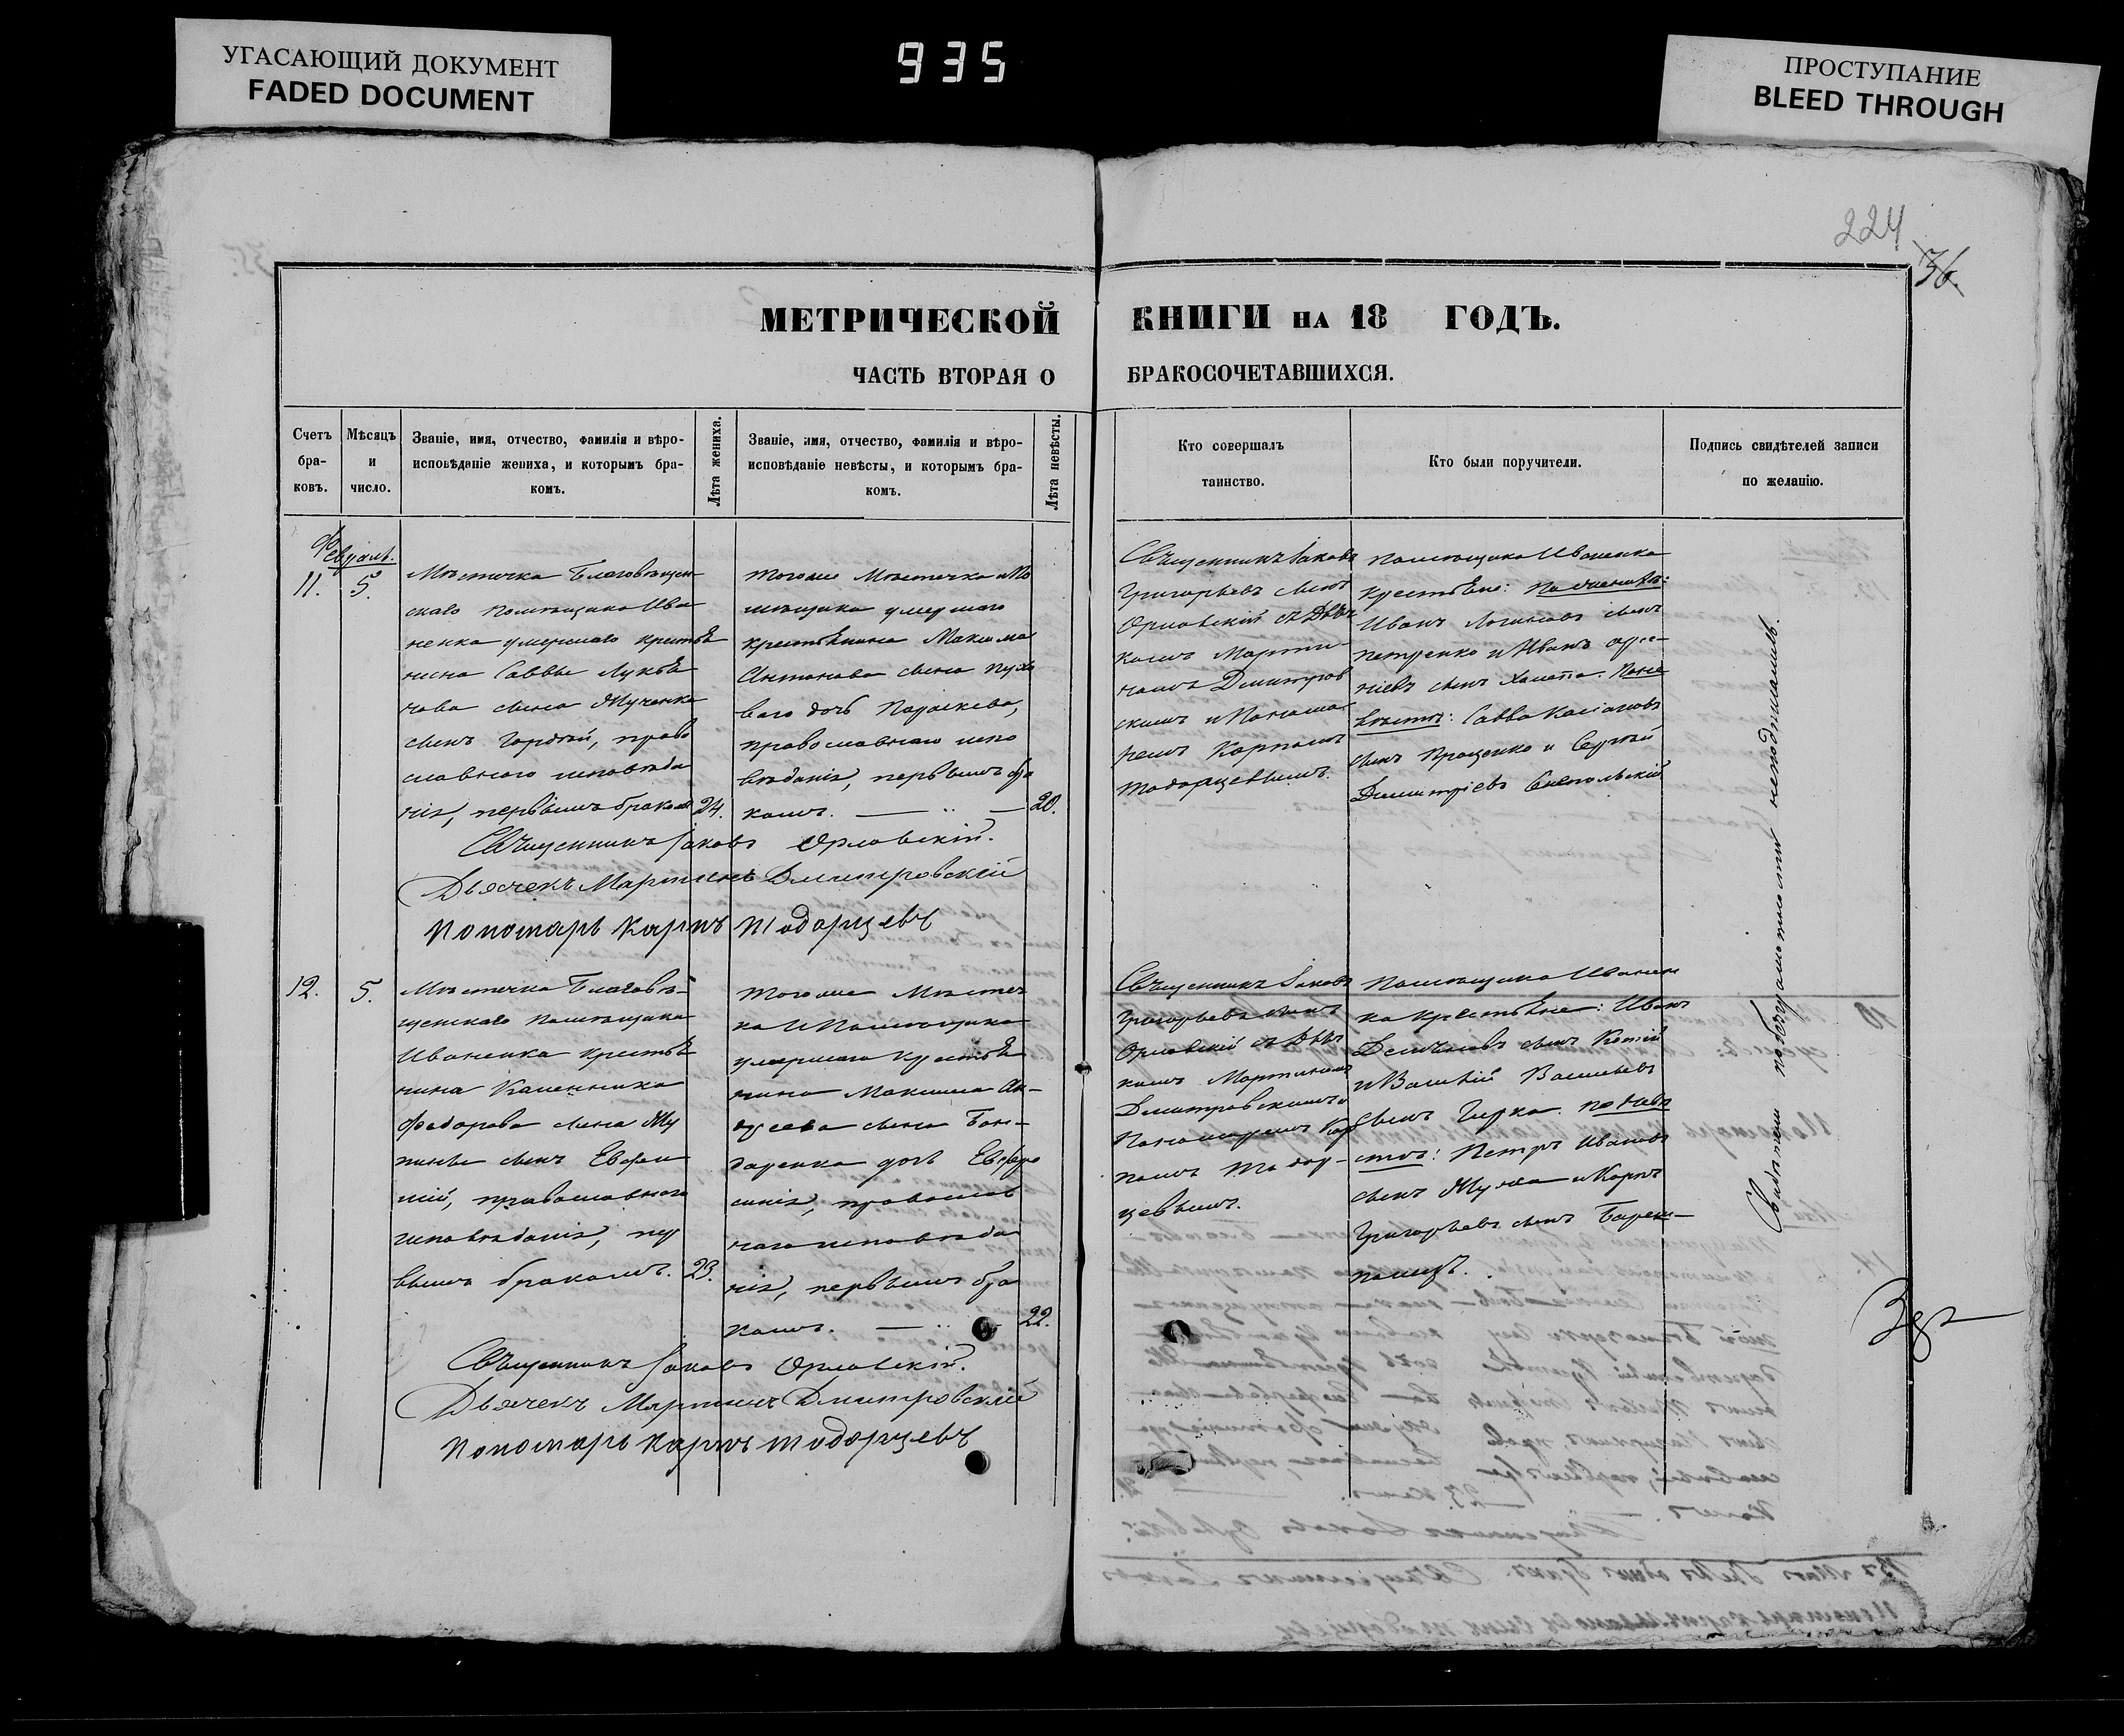 УГАСАЮЩИЙ ДОКУМЕНТ
FADED DOCUMENT
935
ПРОСТУПАНИЕ
BLEED THROUGH
224
36.
МЕТРИЧЕСКОЙ КНИГИ НА 18 ГОДЪ.
ЧАСТЬ ВТОРАЯ О БРАКОСОЧЕТАВШИХСЯ.
Счетъ бра-ковъ.
Мѣсяцъ и число.
Званіе, имя, отчество, фамилія и вѣро-
исповѣданіе жениха, и которымъ бра-
комъ.
Лѣта жениха.
Званіе, имя, отчество, фамилія и вѣро-
исповѣданіе невѣсты, и которымъ бра-
комъ.
Лѣта невѣсты.
Кто совершалъ
таинство.
Кто были поручители.
Подпись свидѣтелей записи
по желанію.
Февраль.
11. 5.
Мѣстечка Благовѣщен-
скаго помѣщика Ива
ненка умершаго крестья
нина Саввы Лукья
нова сына
сынъ Гордѣй, право
славнаго исповѣда
нія, первымъ бракомъ
24.
тогоже Мѣстечка и По
мѣщика умершаго
крестьянина Максима
Антонова сына
ваго дочь Параскева,
православнаго испо
вѣданія, первымъ бра
комъ.
20.
Священникъ Іаковъ
Григорьевъ сынъ
Орловскій съ Дьяч
комъ Марти
номъ Дмитров
скимъ и Понама
ремъ Карпомъ
Тодорцевымъ.
помѣщика Иваненка
крестьяне: По женихѣ:
Иванъ Логиновъ сынъ
Петренко и Иванъ
сынъ Хамата. По не
вѣстѣ: Савва Касіановъ
сынъ Проценко и Сергѣй
Дмитріевъ
Священникъ Іаковъ Орловскій.
Дьячекъ Мартинъ Дмитровскій
Пономарь Карпъ Тодорцевъ
12. 5.
Мѣстечка Благовѣ-
щенскаго помѣщика
Иваненка крестья
нина Калинника
Федорова сына
сынъ Евфи
мій, православнаго
исповѣданія, пер
вымъ бракомъ.
23.
тогоже Мѣстеч
ка и Помѣщика
умершаго крестья
нина Максима Ан-
дреева сына Бон-
даренка дочь Евфро
синія, православ
наго исповѣда
нія, первымъ бра
комъ.
22.
Священникъ Іаковъ
Григорьевъ сынъ
Орловскій съ Дьяч
комъ Мартиномъ
Дмитровскимъ и
Понамаремъ Кар
помъ Тодор-
цевымъ.
Помѣщика Иванен
ка крестьяне: Иванъ
Демьяновъ сынъ
и Василій Васильевъ
сынъ Гирка. по невѣ
стѣ: Петръ Ивановъ
сынъ Муха и Карпъ
Григорьевъ сынъ
Священникъ Іаковъ Орловскій.
Дьячекъ Мартинъ Дмитровскій
Пономарь Карпъ Тодорцевъ
Свидѣтели по безграмотности неподписались.